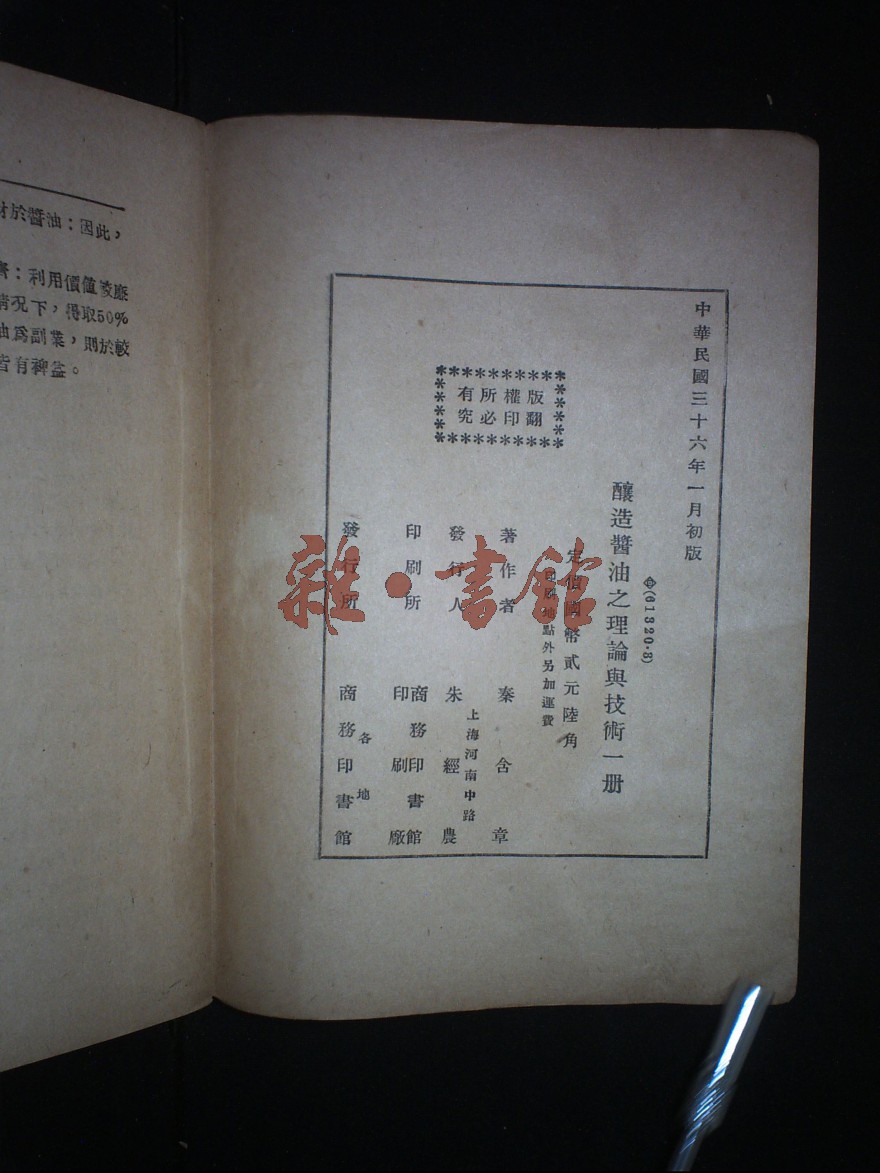 於醬油:因此,
:利用價値
情況下,得取50%
油爲副業,則於較
皆有裨益。
中華民國三十六年一月初版
(61320·3)
釀造醬油之理論與技術一册
定價國幣貳元陸角
印刷地點外另加運費
版權所有
翻印必究
著作者 秦含章
上海河南中路
發行人 朱經農
印刷所 商務印書館印刷廠
各地
發行所 商務印書館
雜·書館